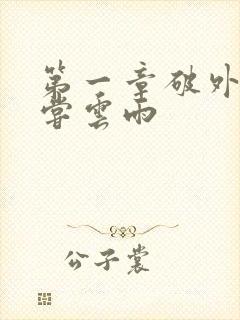 第一章破外
尝云雨
公子裳